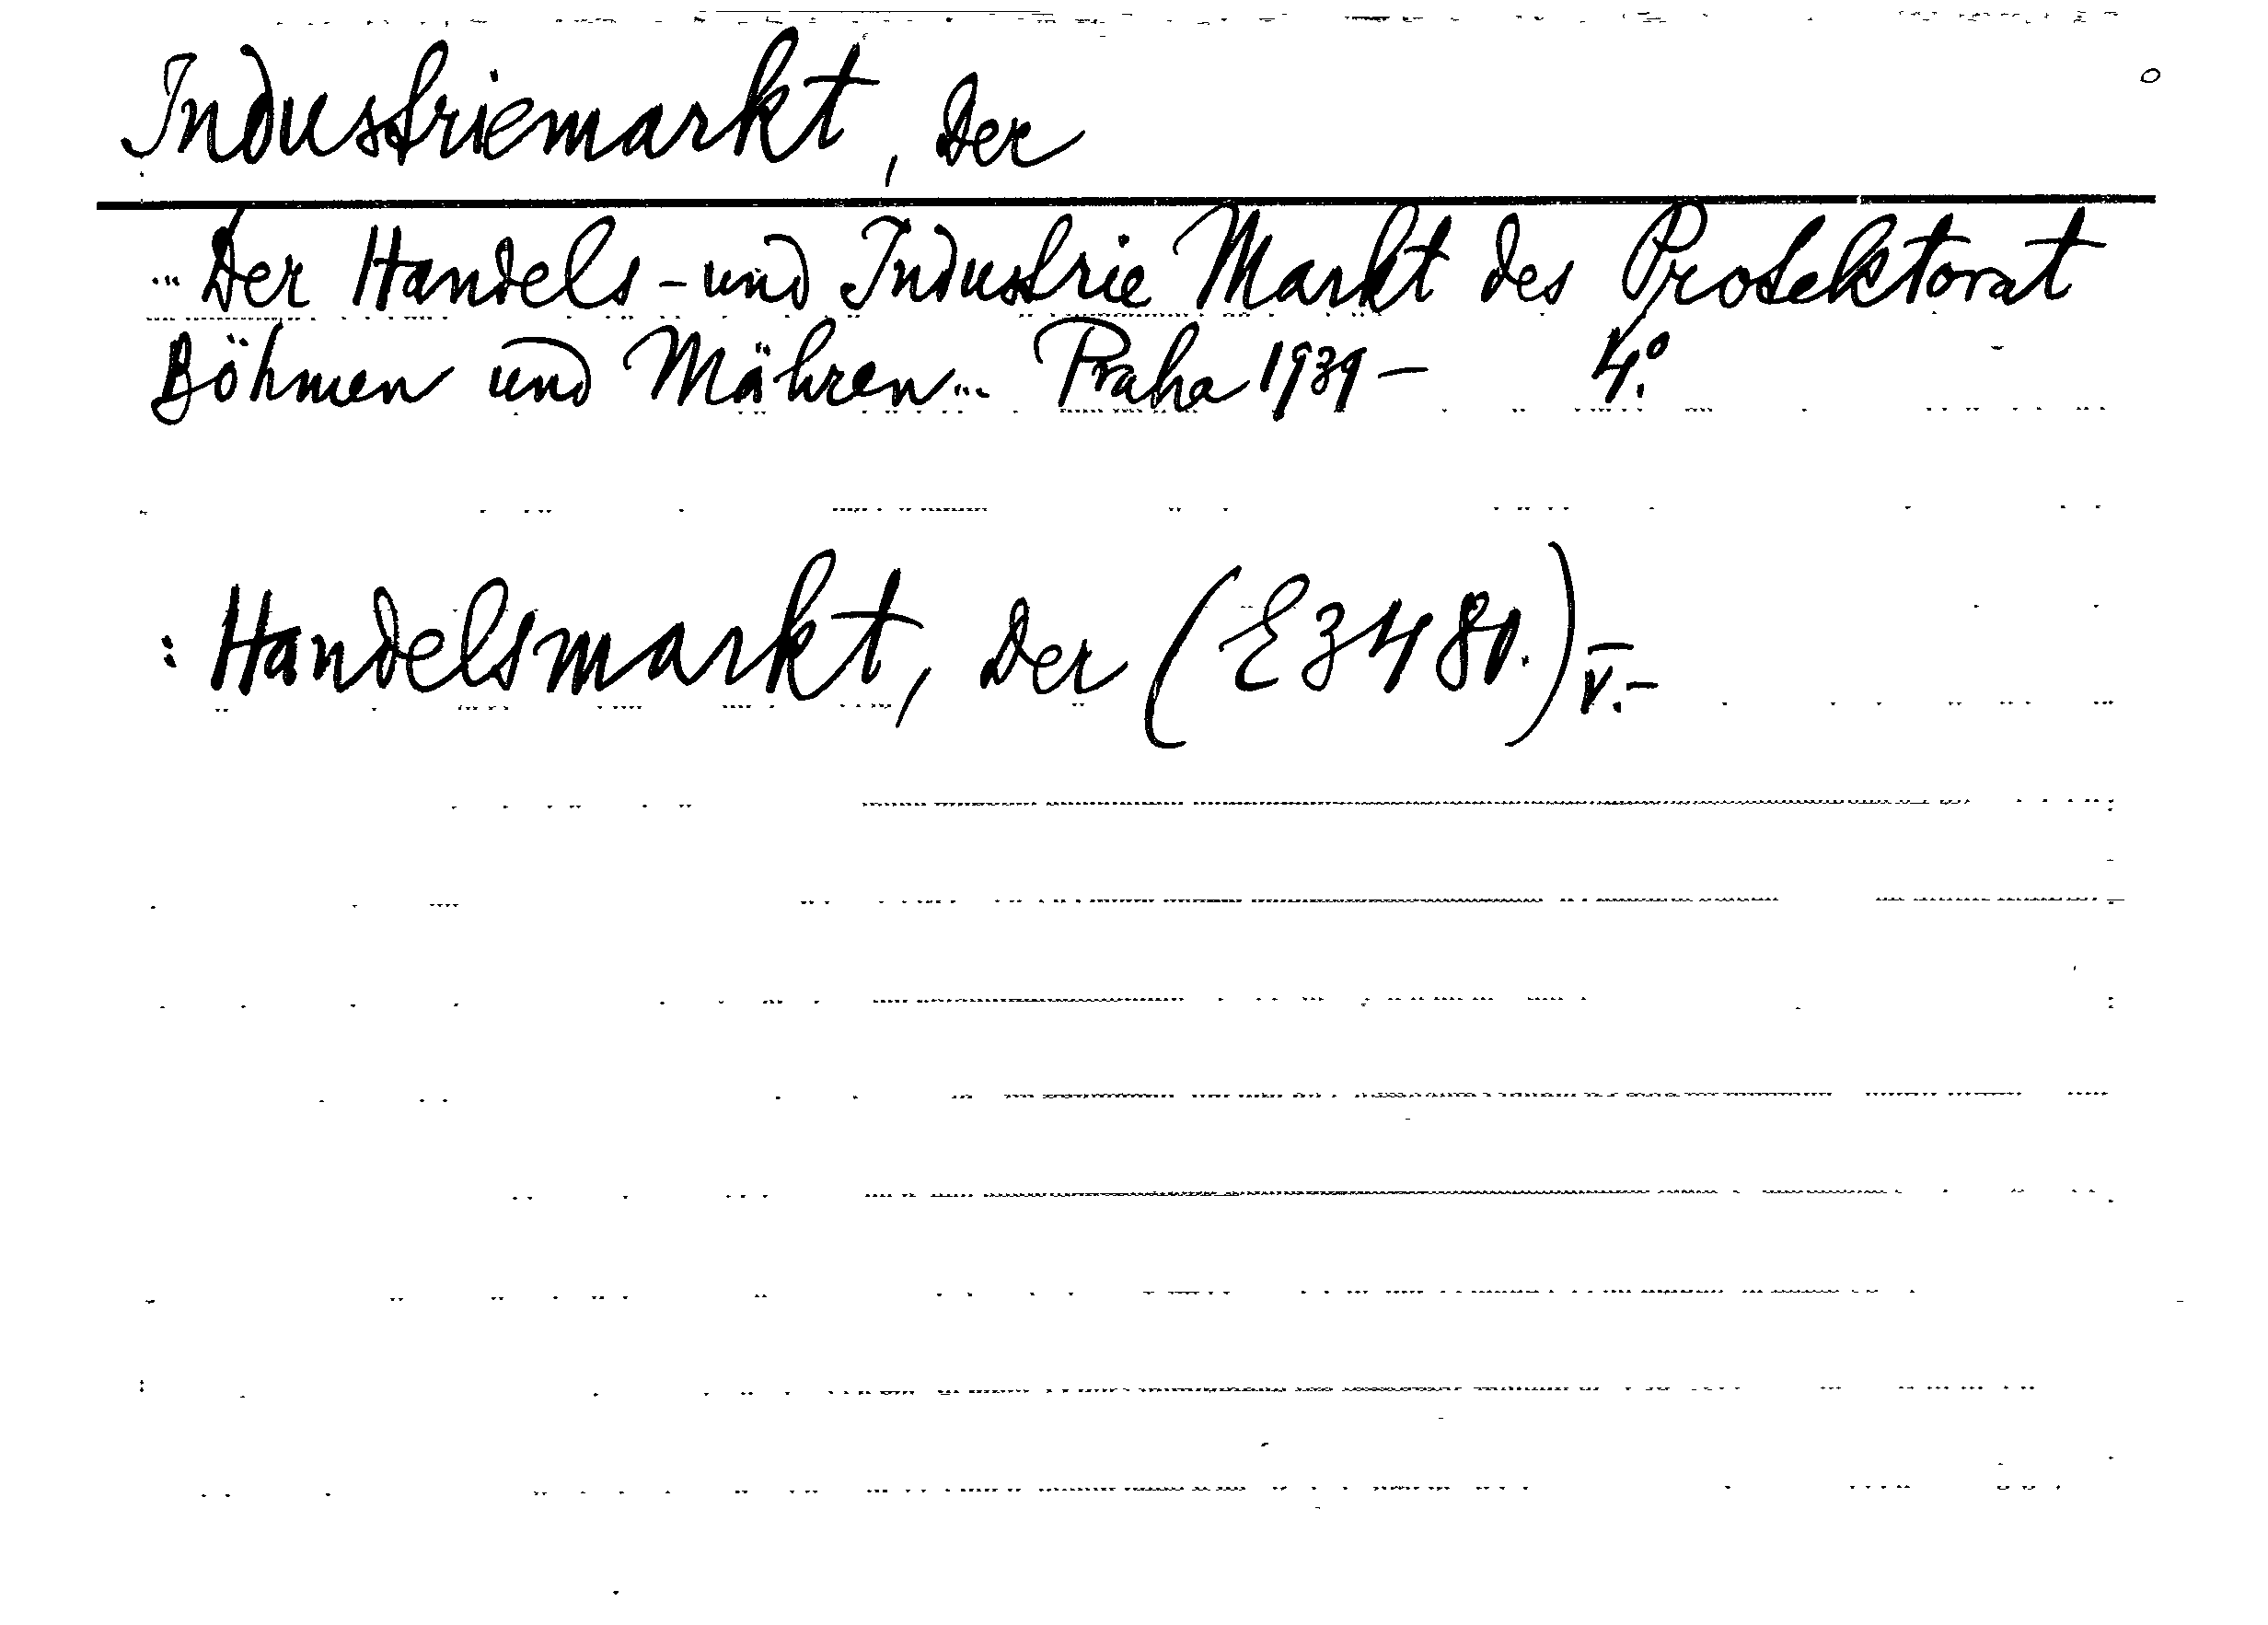 Industriemarkt, Der
... Der Handels - und Industrie Markt des Protektorat
Böhmen und Mähren... Praha 1939 - 4.°
: Handelsmarkt, Der (E 3480.) V.-